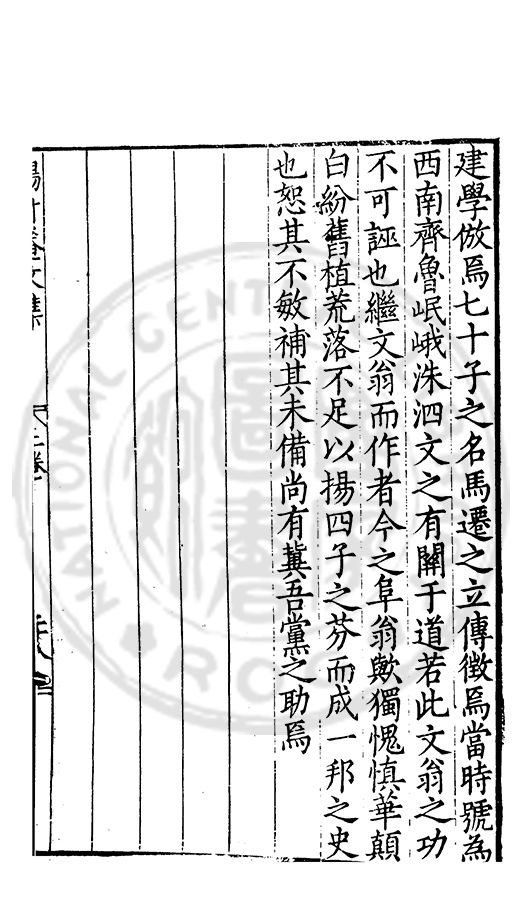 建學倣焉七十子之名馬遷之立傳徵焉當時號為
西南齊魯岷峨洙泗文之有關于道若此文翁之功
不可誣也繼文翁而作者今之阜翁歟獨愧慎華顛
白紛舊植荒落不足以揚四子之芬而成一邦之史
也恕其不敏補其未備尚有冀吾黨之助焉
NATIONAL CENT